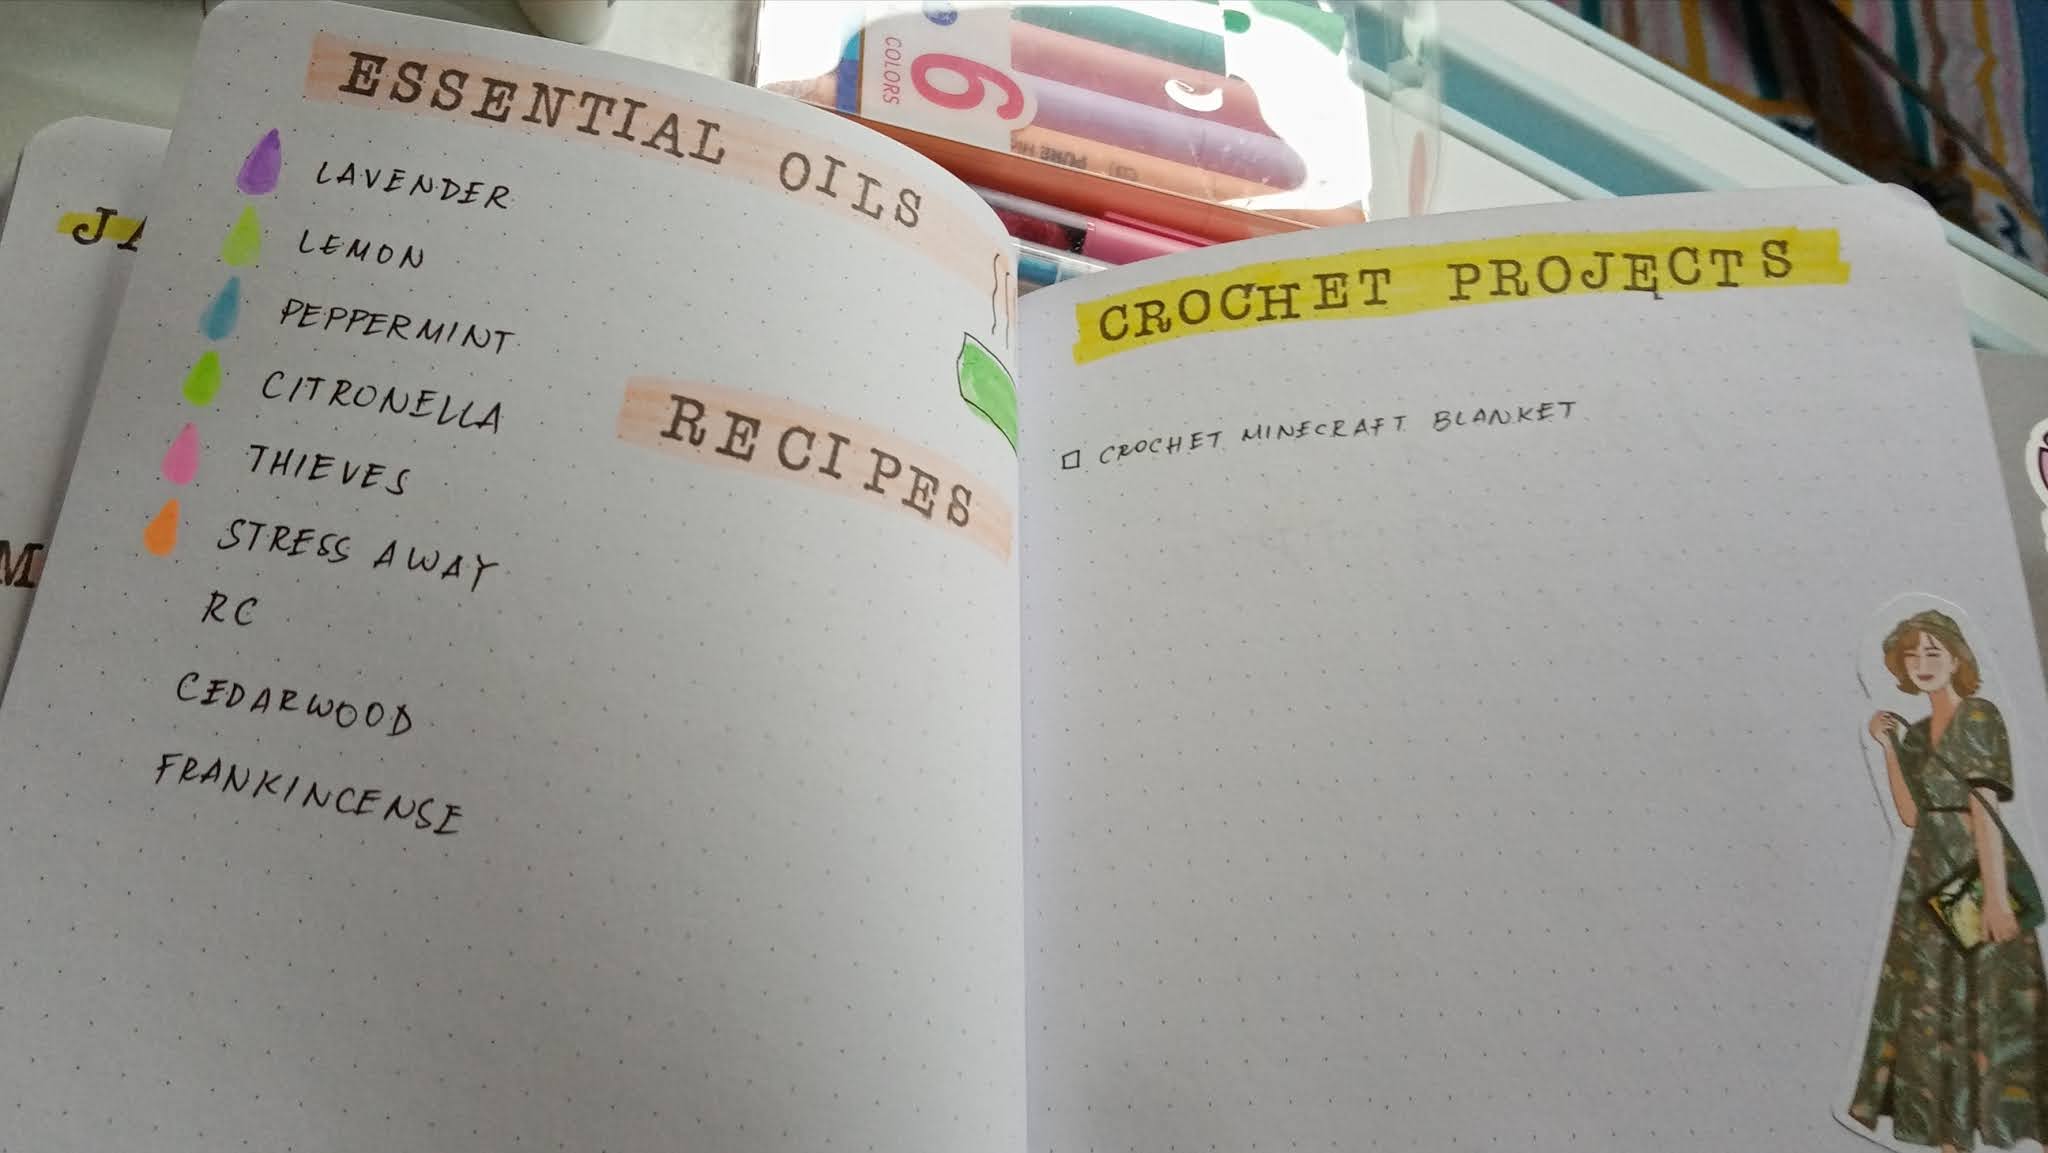 ESSENTIAL OILS
LAVENDER
LEMON
PEPPERMINT
CITRONELLA
THIEVES
STRESS AWAY
RC
CEDARWOOD
FRANKINCENSE
RECIPES
CROCHET PROJECTS
CROCHET MINECRAFT BLANKET
JA
M
6
COLORS
PURE